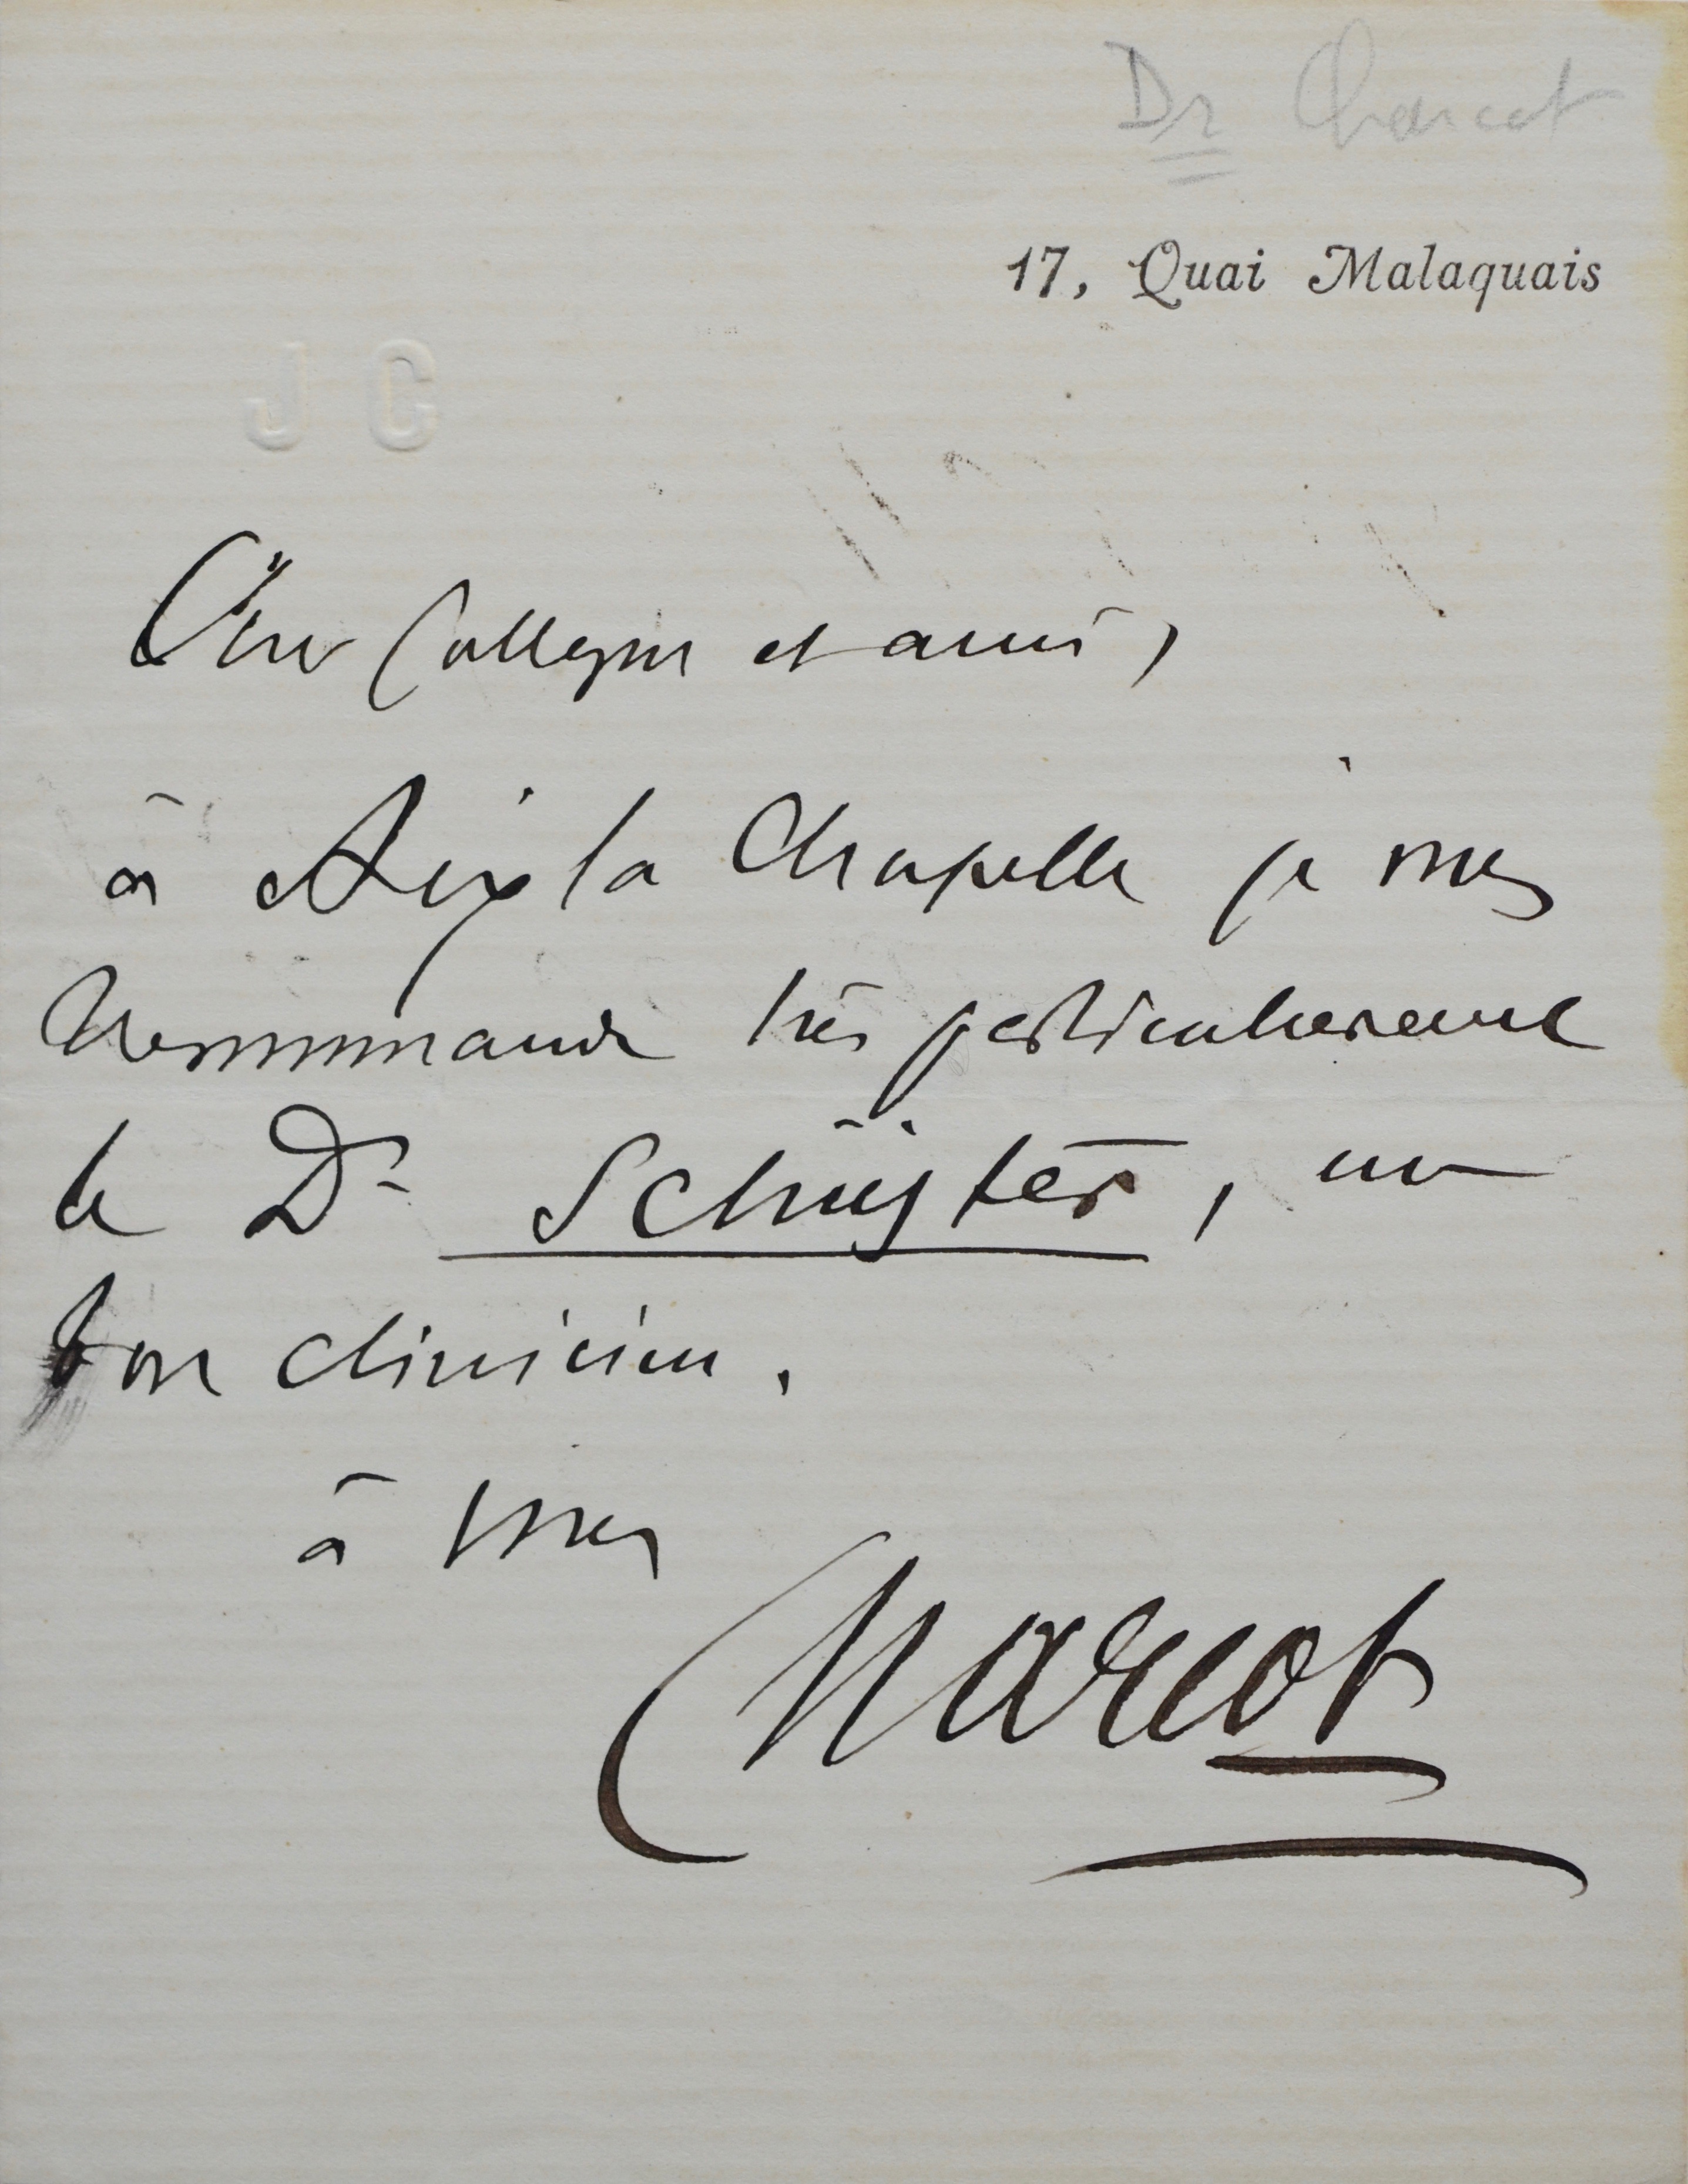 Dr Charcot
17, Quai Malaquais
J C
Cher Collegue et ami,
à Aix la Chapelle je vous
recommande très particulierement
le Dr Schuster, un
bon clinicien.
à vous
Charcot